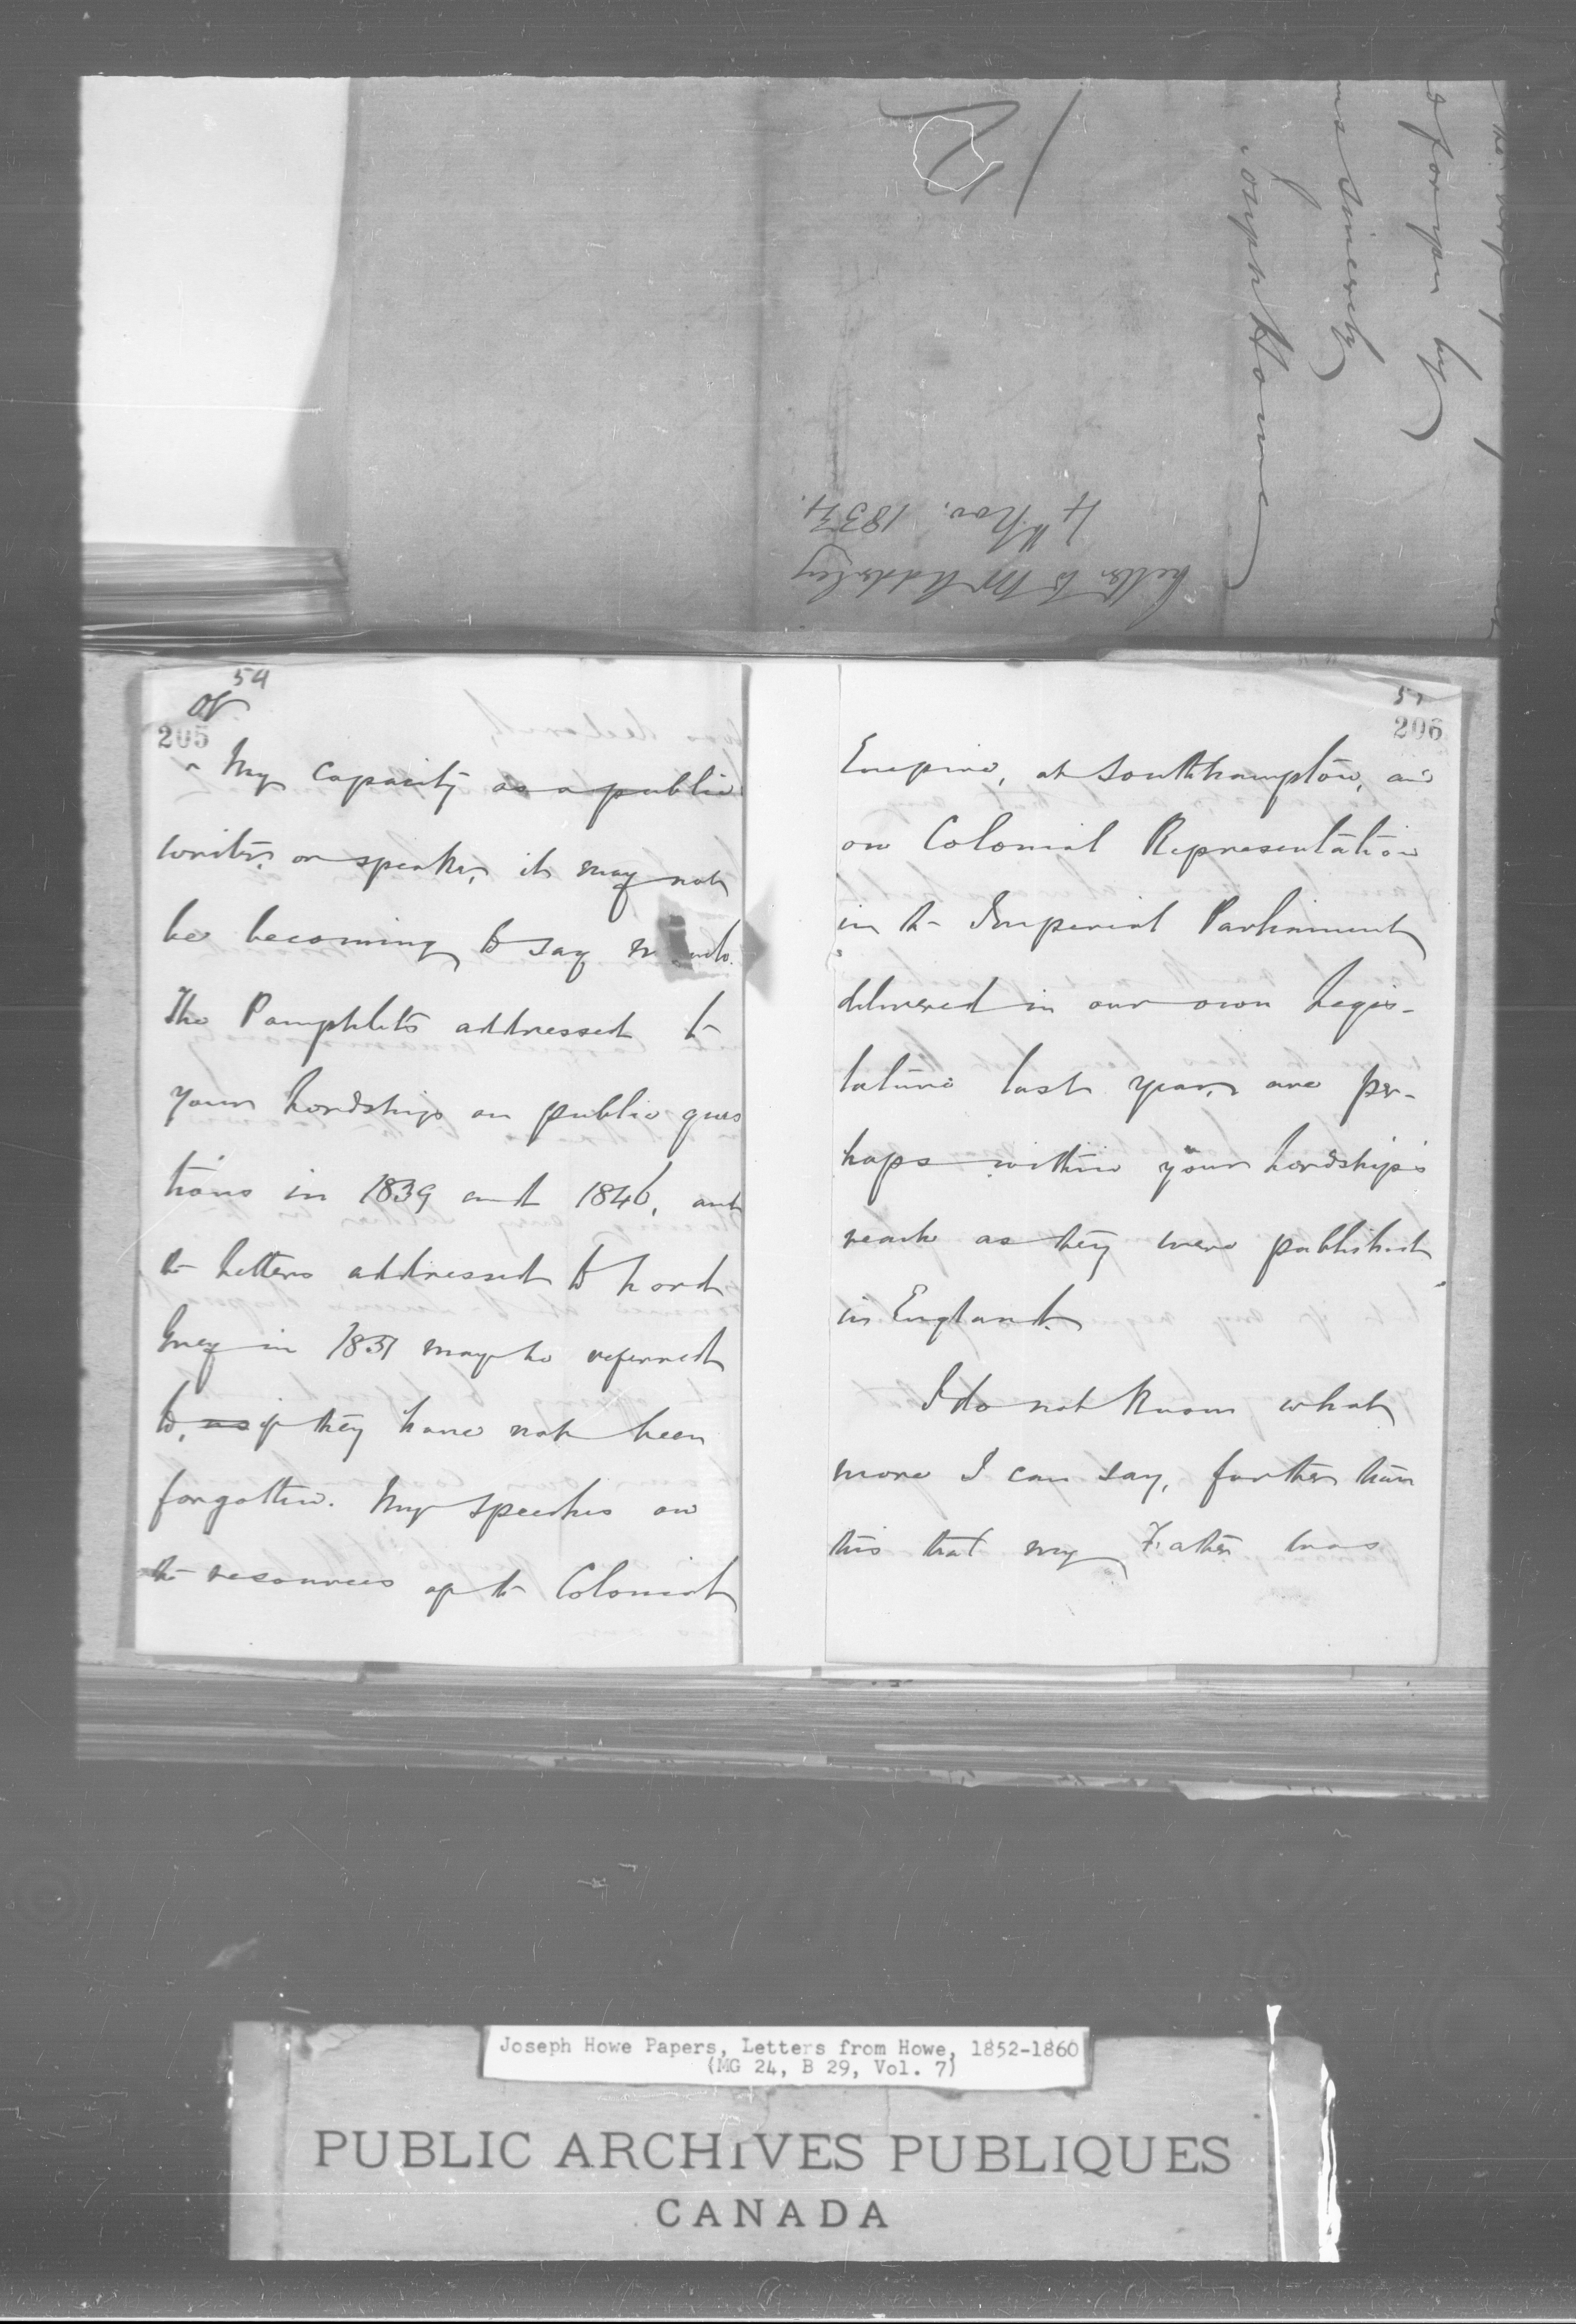 the
for you by
Sincerely
Joseph Howe
Letter to Mr Adderley
4th Nov. 1834.
54
Of
205
^ My capacity as a public
writer or speaker, it may not
be becoming to say much.
The Pamphlets addressed to
your Lordship on public ques
tions in 1839 and 1846, and
the Letters addressed to Lord
Grey in 1851 may be referred
to, as if they have not been
forgotten. My speeches on
the resources of the Colonial
206
Empire, at Southhampton, and
on Colonial Representation
in the Imperial Parliament
delivered in our own Legis-
lature last year, are per-
haps within your Lordship's
reach as they were published
in England.
I do not know what
more I can say, further than
this that my Father was
Joseph Howe Papers, Letters from Howe, 1852-1860
(MG 24, B 29, Vol. 7)
PUBLIC ARCHIVES PUBLIQUES
CANADA